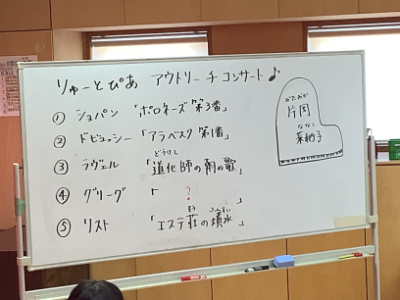 りゅーとぴあ アウトリーチコンサート♪
① ショパン 「ポロネーズ第3番」
② ドビュッシー 「アラベスク第1番」
③ ラヴェル 「道化師の朝の歌」
どうけし
④ グリーグ 「 ? 」
⑤ リスト 「エステ荘の噴水」
そう ふんすい
かたおか
片岡
ななこ
菜納子